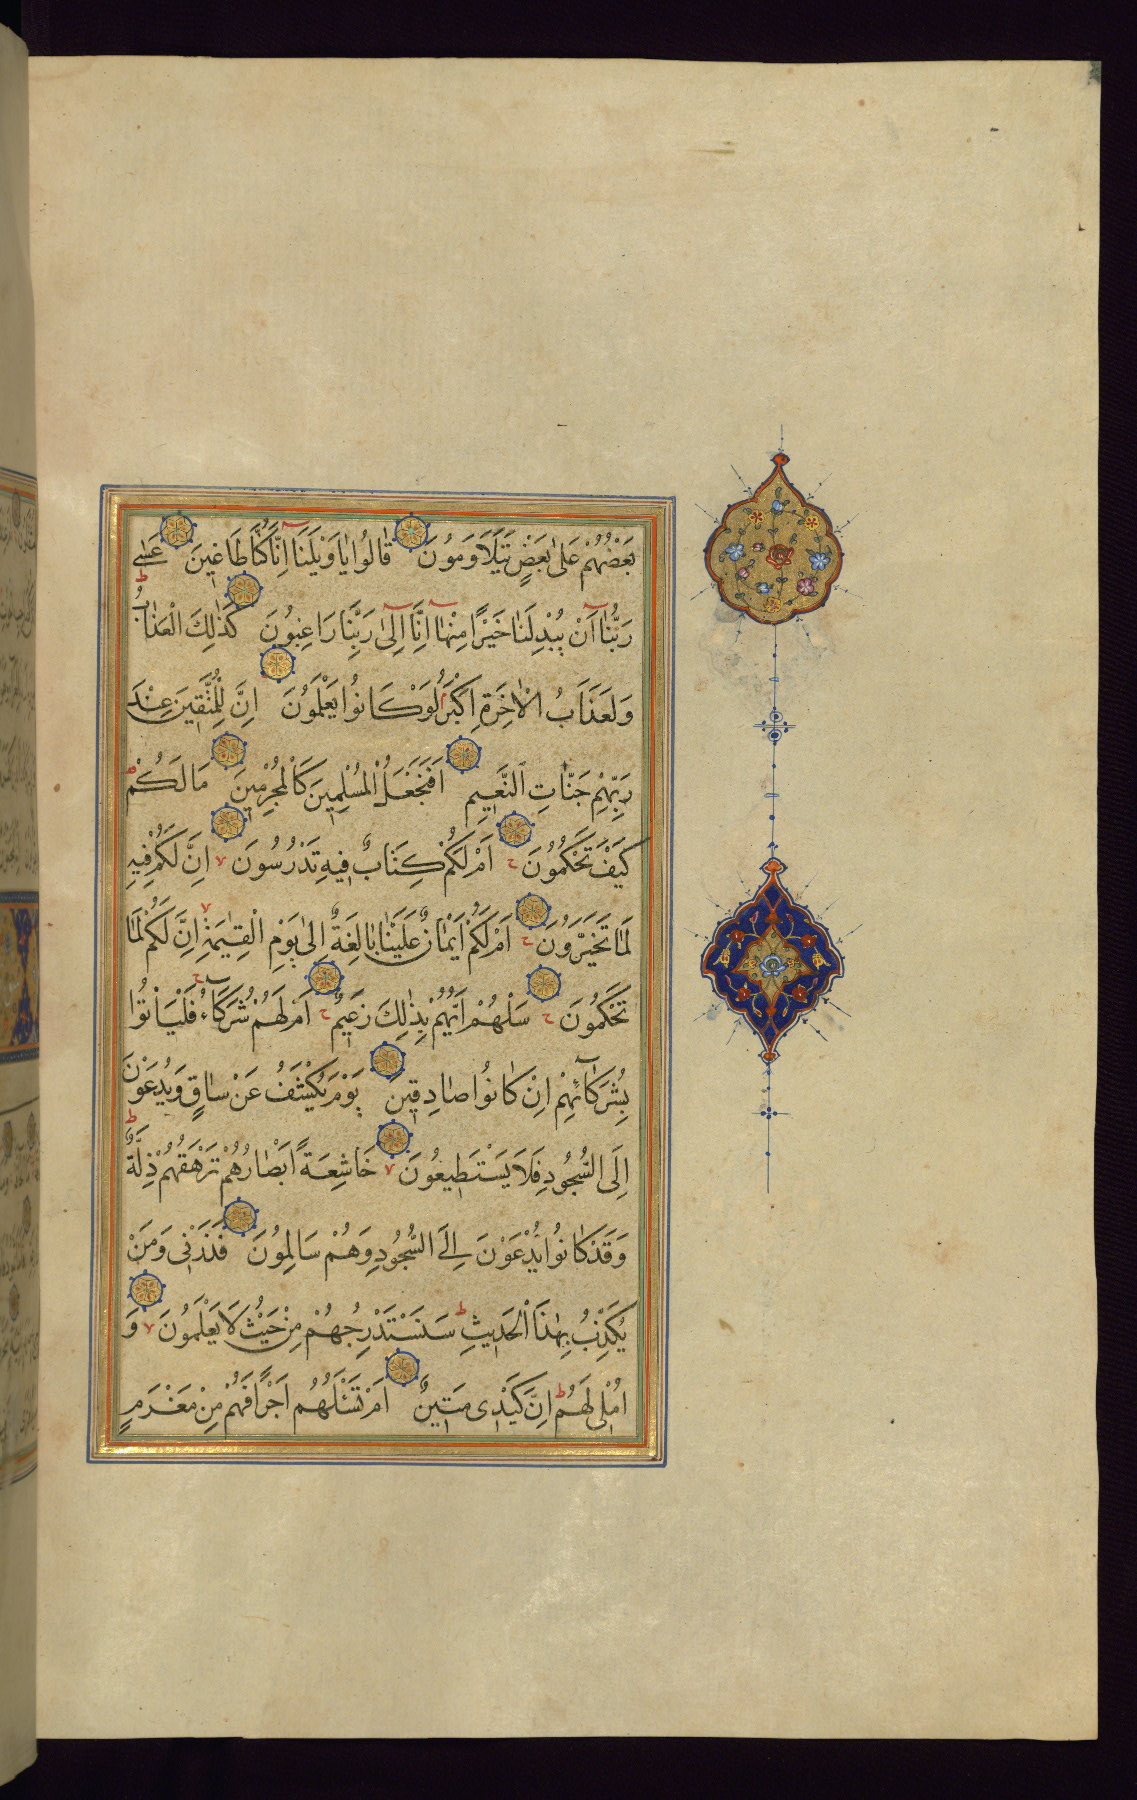 بَعْضُهُمْ عَلٰى بَعْضٍ يَتَلَاوَمُونَ قَالُوا يَا وَيْلَنَا اِنَّا كُنَّا طَاغِينَ عَسٰى
رَبُّنَا اَنْ يُبْدِلَنَا خَيْرًا مِنْهَا اِنَّا اِلٰى رَبِّنَا رَاغِبُونَ كَذٰلِكَ الْعَذَابُ
وَلَعَذَابُ الْاٰخِرَةِ اَكْبَرُ لَوْ كَانُوا يَعْلَمُونَ اِنَّ لِلْمُتَّقِينَ عِنْدَ
رَبِّهِمْ جَنَّاتِ النَّعِيمِ اَفَنَجْعَلُ الْمُسْلِمِينَ كَالْمُجْرِمِينَ مَا لَكُمْ
كَيْفَ تَحْكُمُونَ اَمْ لَكُمْ كِتَابٌ فِيهِ تَدْرُسُونَ اِنَّ لَكُمْ فِيهِ
لَمَا تَخَيَّرُونَ اَمْ لَكُمْ اَيْمَانٌ عَلَيْنَا بَالِغَةٌ اِلٰى يَوْمِ الْقِيٰمَةِ اِنَّ لَكُمْ لَمَا
تَحْكُمُونَ سَلْهُمْ اَيُّهُمْ بِذٰلِكَ زَعِيمٌ اَمْ لَهُمْ شُرَكَاءُ فَلْيَأْتُوا
بِشُرَكَائِهِمْ اِنْ كَانُوا صَادِقِينَ يَوْمَ يُكْشَفُ عَنْ سَاقٍ وَيُدْعَوْنَ
اِلَى السُّجُودِ فَلَا يَسْتَطِيعُونَ خَاشِعَةً اَبْصَارُهُمْ تَرْهَقُهُمْ ذِلَّةٌ
وَقَدْ كَانُوا يُدْعَوْنَ اِلَى السُّجُودِ وَهُمْ سَالِمُونَ فَذَرْنِى وَمَنْ
يُكَذِّبُ بِهٰذَا الْحَدِيثِ سَنَسْتَدْرِجُهُمْ مِنْ حَيْثُ لَا يَعْلَمُونَ وَ
اُمْلِى لَهُمْ اِنَّ كَيْدِى مَتِينٌ اَمْ تَسْئَلُهُمْ اَجْرًا فَهُمْ مِنْ مَغْرَمٍ